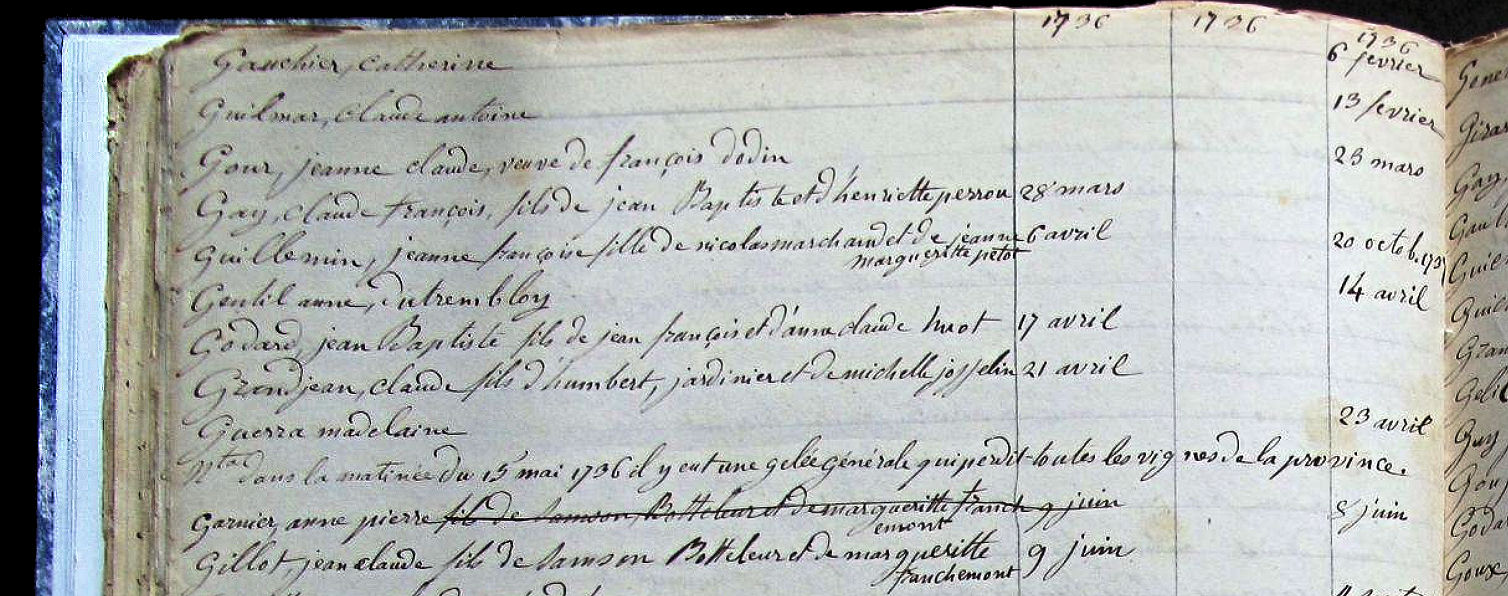 1736 1736 1736
Gauthier, catherine 6 fevrier
Guilmar, claude antoine 13 fevrier
Gour, jeanne claude, veuve de françois dodin 23 mars
Gay, claude françois, fils de jean Baptiste et d'henriette perrou 28 mars
Guillemin, jeanne françoise fille de nicolas marchand et de jeanne 6 avril 20 octob. 173
margueritte petot
Gentil anne, dutrembloy 14 avril
Godard, jean Baptiste fils de jean françois et d'anne claude huot 17 avril
Grandjean, claude fils d'humbert, jardinier et de michelle josselin 21 avril
Guerra madelaine 23 avril
Nta dans la matinée du 15 mai 1736 il y eut une gelée générale qui perdit toutes les vignes de la province.
Garnier, anne pierre fils de Samson, Botteleur et de margueritte franch 9 juin 8 juin
emont
Gillot, jean claude fils de Samson Botteleur et de margueritte 9 juin
franchemont
Gene
Girar
Gay
Gaul
Guil
Gran
Guy
Goda
Goux